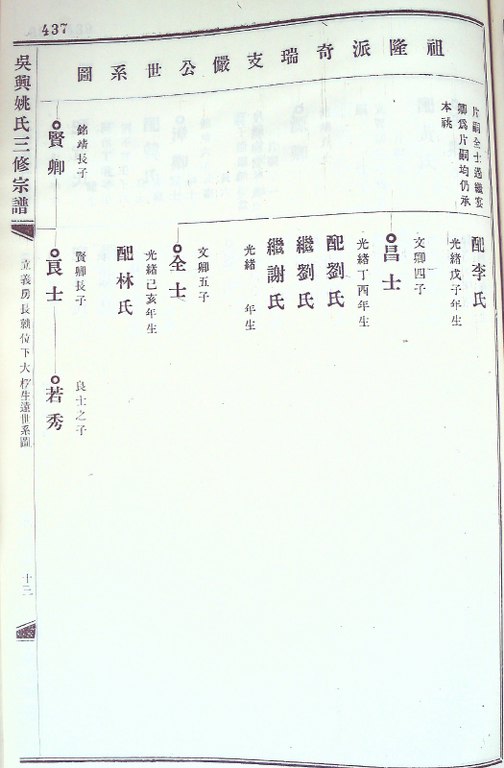 437
祖隆派奇瑞支儼公世系圖
片嗣全士過繼宏
卿爲片嗣均仍承
本祧
配李氏
光緒戊子年生
文卿四子
昌士
光緒丁酉年生
配劉氏
繼劉氏
繼謝氏
光緒 年生
文卿五子
全士
光緒己亥年生
配林氏
銘靖長子
賢卿
賢卿長子
良士
良士之子
若秀
吳興姚氏三修宗譜
立義房長就位下大 生遠世系圖
十三